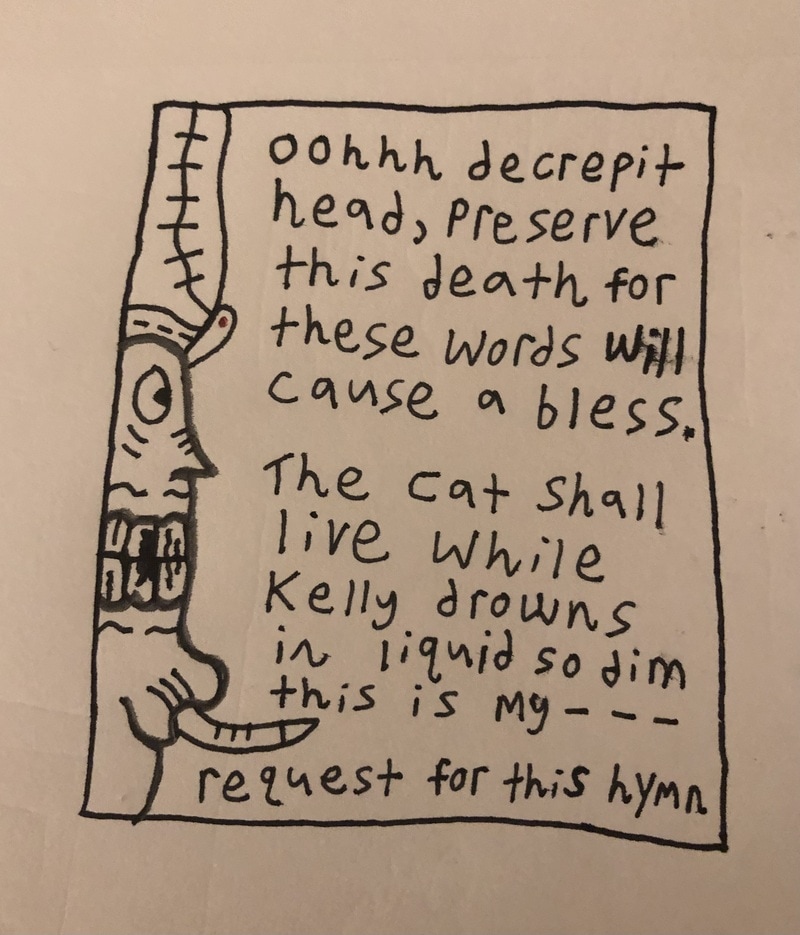 oohhh decrepit
head, preserve
this death for
these words will
cause a bless.
The cat shall
live while
Kelly drowns
in liquid so dim
this is my - - -
request for this hymn